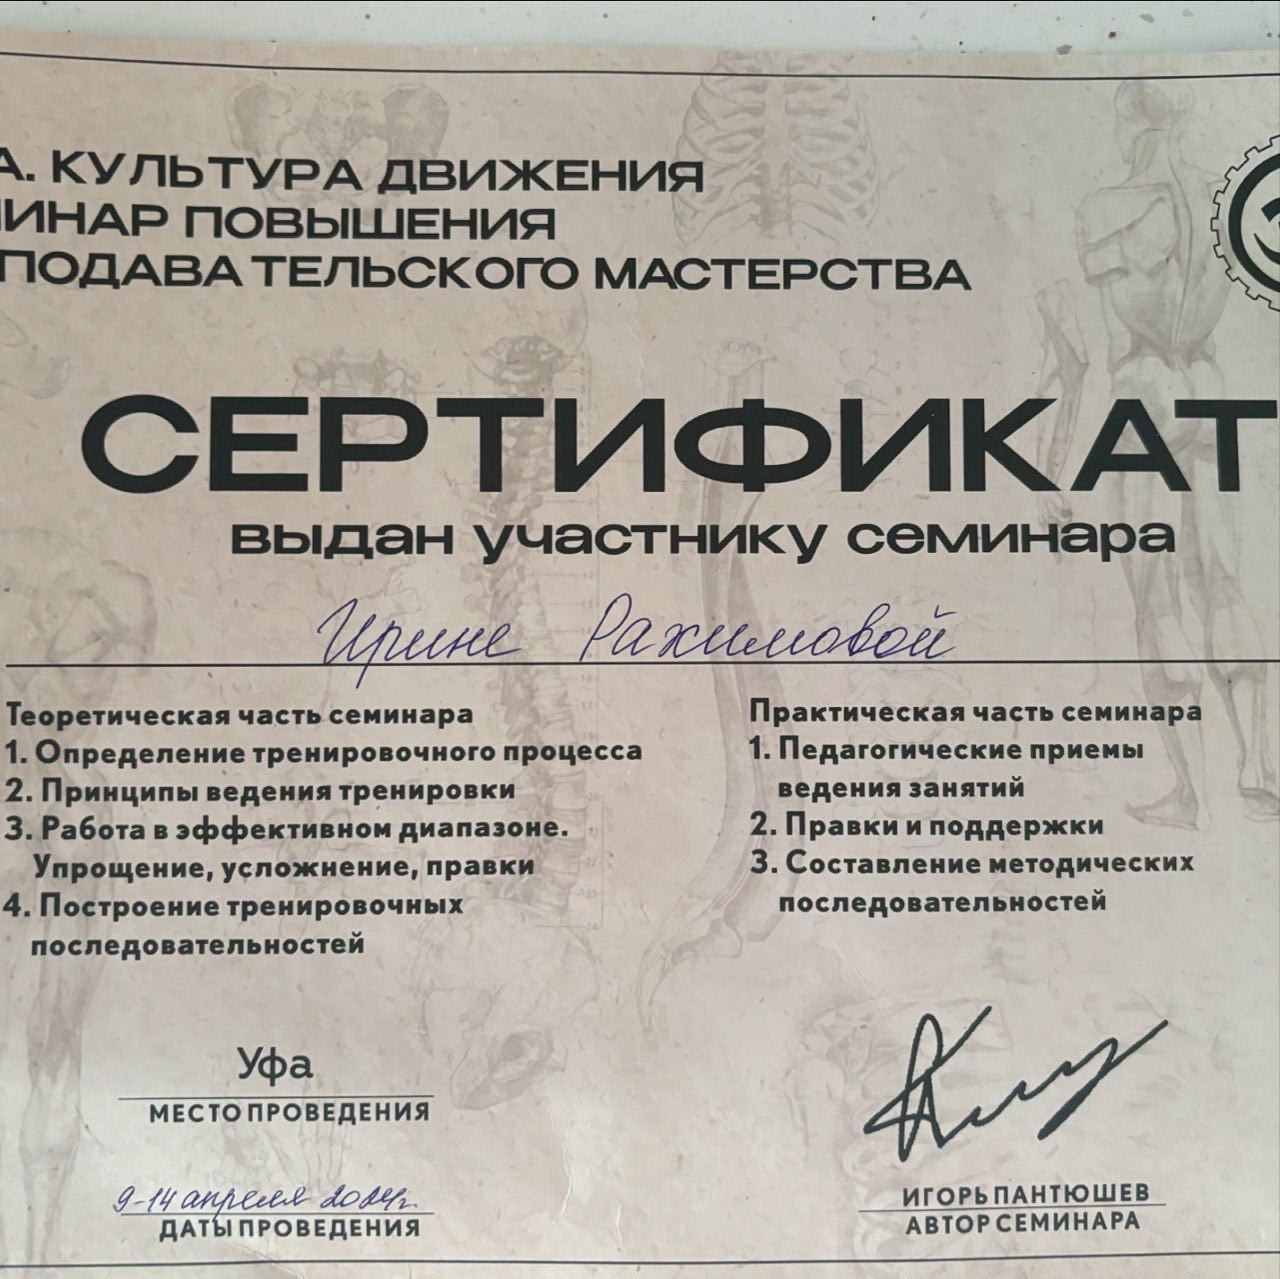 А. КУЛЬТУРА ДВИЖЕНИЯ
ИНАР ПОВЫШЕНИЯ
ПОДАВАТЕЛЬСКОГО МАСТЕРСТВА
СЕРТИФИКАТ
выдан участнику семинара
Ирине Рахимовой
Теоретическая часть семинара
1. Определение тренировочного процесса
2. Принципы ведения тренировки
3. Работа в эффективном диапазоне.
Упрощение, усложнение, правки
4. Построение тренировочных
последовательностей
Практическая часть семинара
1. Педагогические приемы
ведения занятий
2. Правки и поддержки
3. Составление методических
последовательностей
Уфа
МЕСТО ПРОВЕДЕНИЯ
9-14 апреля 2024г.
ДАТЫ ПРОВЕДЕНИЯ
ИГОРЬ ПАНТЮШЕВ
АВТОР СЕМИНАРА